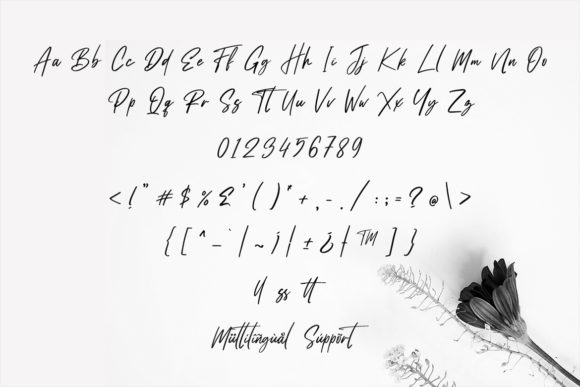 Aa Bb Cc Dd Ee Ff Gg Hh Ii Jj Kk Ll Mm Nn Oo
Pp Qq Rr Ss Tt Uu Vv Ww Xx Yy Zz
0123456789
<!"#$%&'()*+,-./:;=?@\>
{[^_`|~¡¦±¿ƒ™]}
ll ss tt
Mültilingüãl Süppõrt